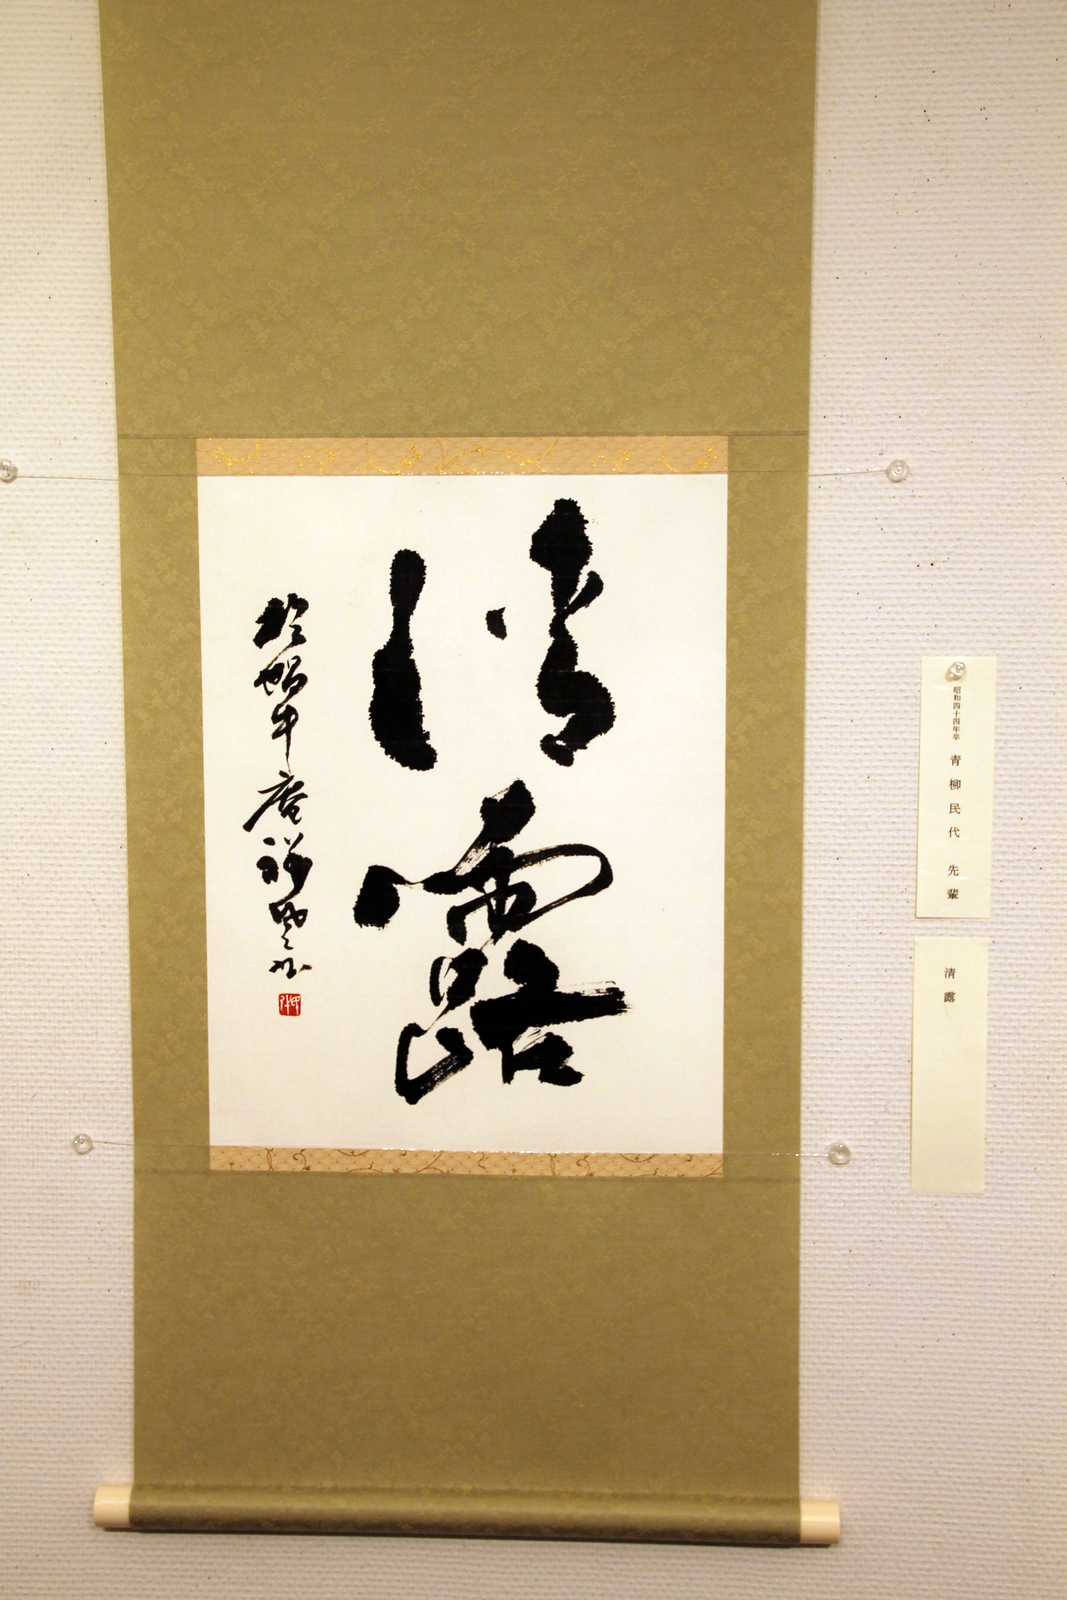 清露
於蝸牛庵祥
昭和四十四年卒 青柳民代 先輩
清露